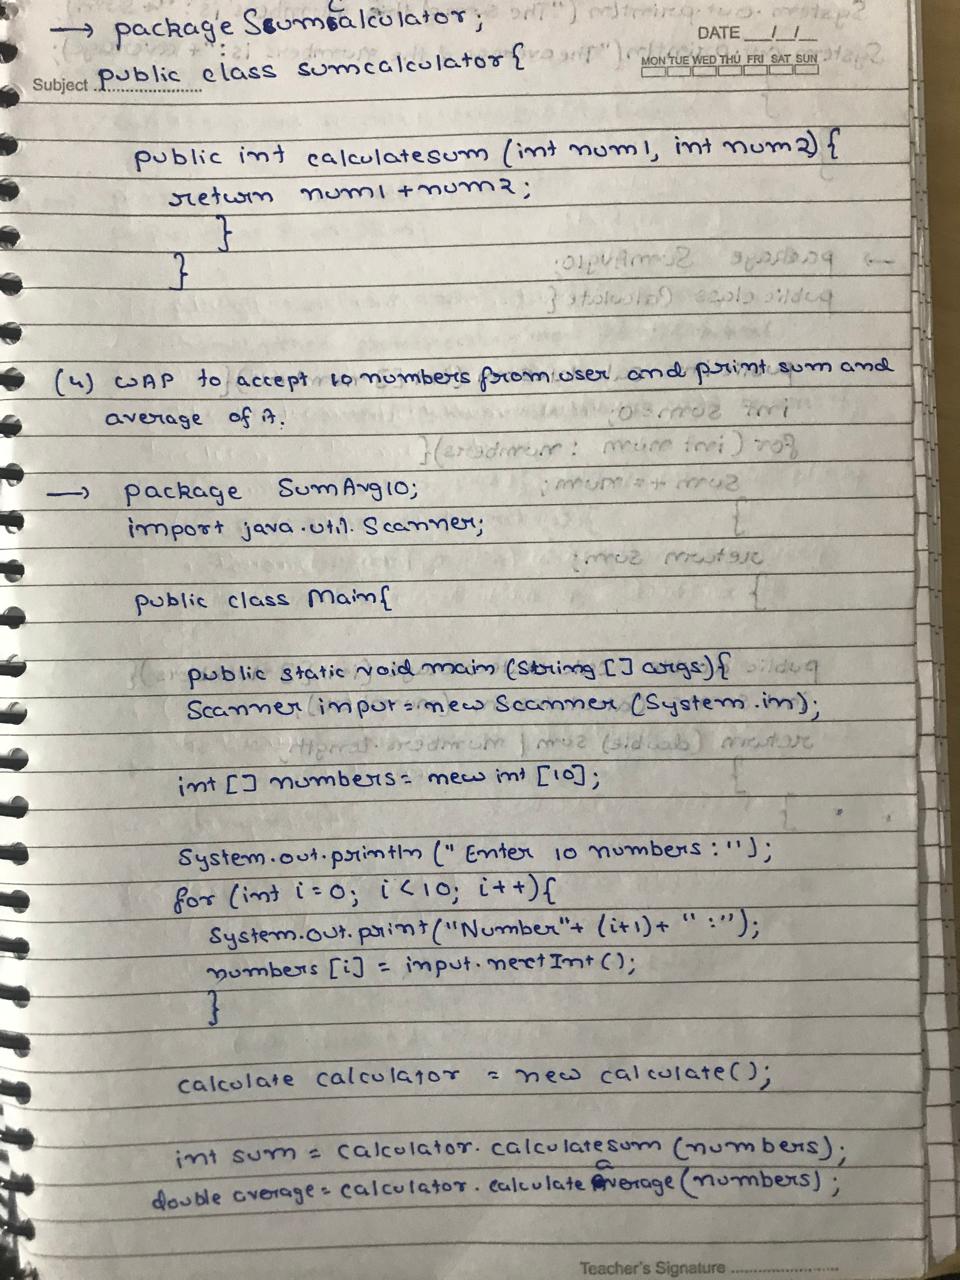 → package Sumcalculator;
DATE __/__/__
MON TUE WED THU FRI SAT SUN
Subject public class sumcalculator{
public int calculatesum (int num1, int num2) {
return num1 + num2;
}
}
(4) WAP to accept 10 numbers from user and print sum and
average of it.
→ package SumAvg10;
import java.util.Scanner;
public class Main{
public static void main (String [] args){
Scanner input = new Scanner (System.in);
int [] numbers = new int [10];
System.out.println (" Enter 10 numbers : ");
for (int i = 0; i < 10; i++){
System.out.print ("Number"+ (i+1) + " :");
numbers [i] = input.nextInt ();
}
calculate calculator = new calculate();
int sum = calculator. calculatesum (numbers);
double average = calculator. calculate average (numbers);
Teacher's Signature